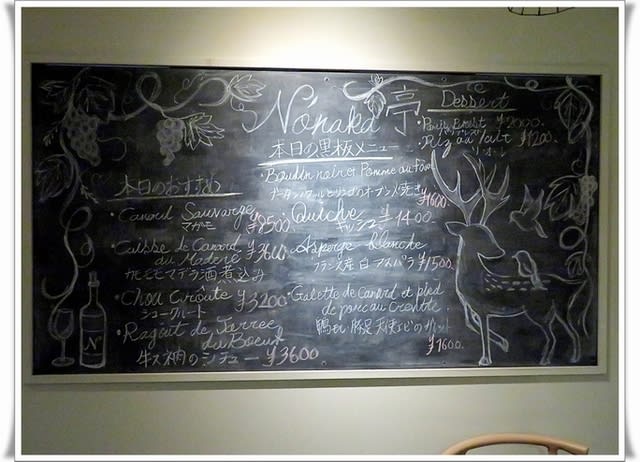 Nonaka 亭
本日の黒板メニュー
本日のおすすめ
・Canard Sauvarge
マガモ ¥3500
・Cuisse de Canard
du Madère ¥3600
カモモモマデラ酒煮込み
・Chou Croûte ¥3200
シュークルート
・Ragoût de Jarree
du Boeuf
牛スネ肉のシチュー ¥3600
・Boudin noir et Pomme au four
ブーダンノワールとリンゴのオーブン焼き
¥1600
・Quiche
キッシュ ¥1400.
・Asperge Blanche
フランス産 白アスパラ ¥1500
・Galette de Canard et pied
de porc au
鴨もも 豚足 のガレット
¥1600.
Dessert
・Paris Brest ¥2000.
・Riz au lait ¥1200.
リオレ
N